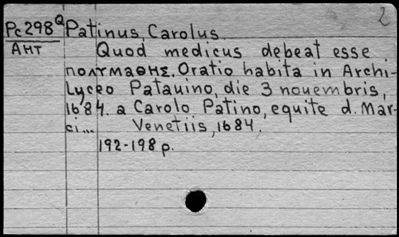 2
Pc298Q Patinus, Carolus.
Aht Quod medicus debeat esse
πολτμαθης. Oratio habita in Archi-
Lyceo Patauino, die 3 nouembris,
1684. a Carolo Patino, equite d. Mar-
ci... Venetiis, 1684.
192-198 p.